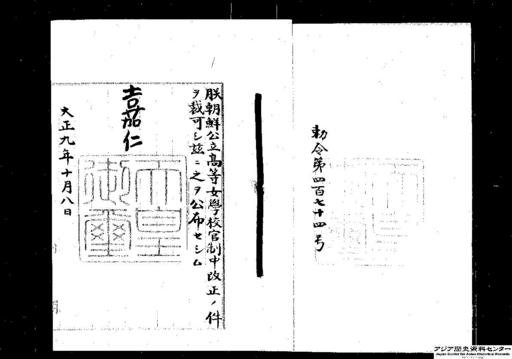 勅令第四百七十四号
朕朝鮮公立高等女學校官制中改正ノ件
ヲ裁可シ茲ニ之ヲ公布セシム
嘉仁
天皇御璽
大正九年十月八日
アジア歴史資料センター
Japan Center for Asian Historical Records